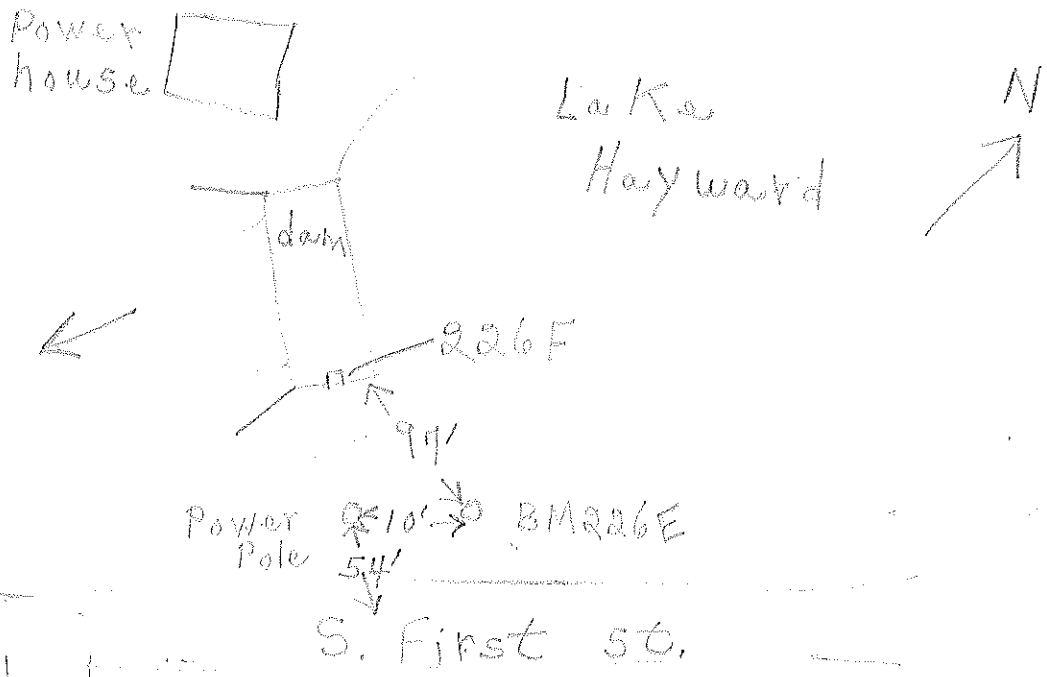 Power
house
Lake
Hayward
N
dam
226F
97'
Power
Pole
10'
BM226E
54'
S. First St.